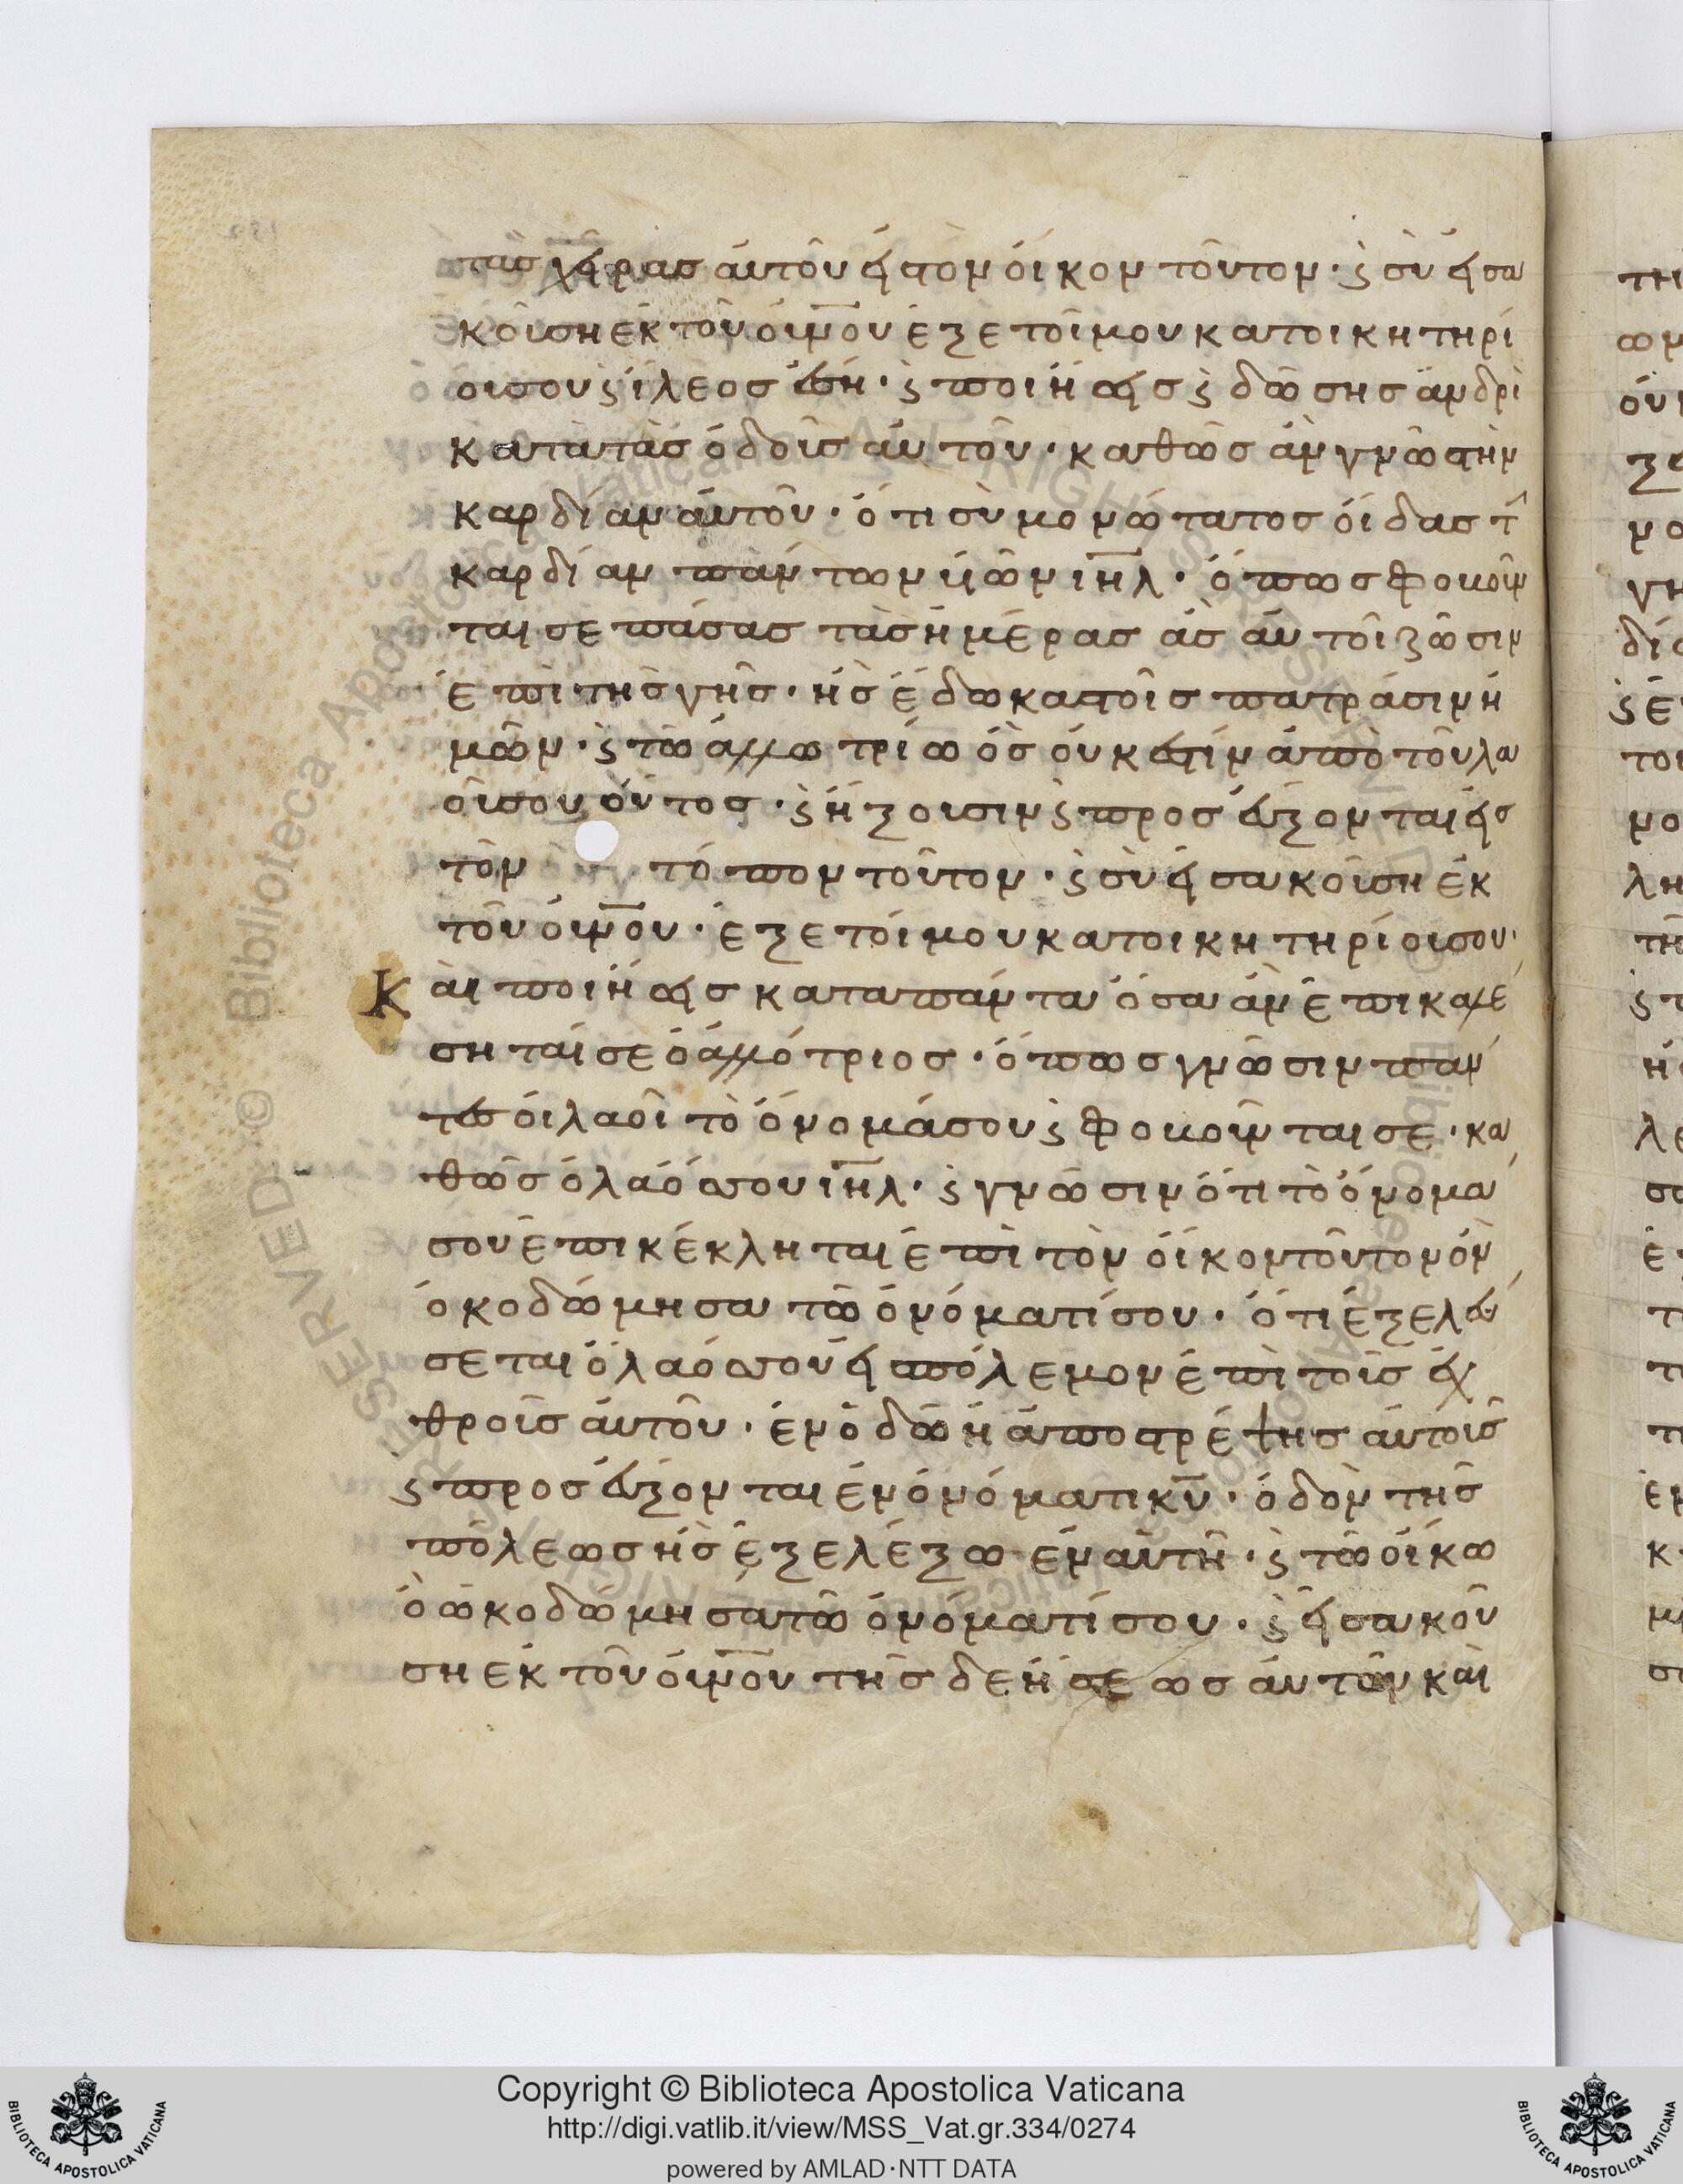 τὰς χεῖρας ἀυτοῦ εἰ στὸν ὄικον τοῦτον· ϗ σὺ εἰσα
κούσῃ ἐκ τοῦ οὐνοῦ ἐξ ἑτοίμου κατοικητηρί
ου σου ϗ ἵλεος ἔσῃ· ϗ ποιήσεις ϗ δώσῃς ἀνδρὶ
κατὰ τὰς ὁδοὺς ἀυτοῦ· καθὼς ἂν γνῶς τὴν
καρδίαν ἀυτοῦ· ὅτι σὺ μονώτατος ὄιδας τὴν
καρδίαν πάντων υἱῶν ιηλ· ὅπως φοβοῦν
ται σε πάσας τὰς ἡμέρας ἃς ἀυτοὶ ζῶσιν
ἐπὶ τῆς γῆς· ἧς ἔδωκας τοῖς πατράσιν ἡ
μῶν· ϗ τῶ ἀλλωτρίω ὃς ὀυκ ἔστιν ἀπὸ τοῦ λα
οῦ σου ὄντος· ϗ ἥξουσιν ϗ προσεύξονται εἰς
τὸν τόπον τοῦτον· ϗ σὺ εἰσακούσῃ ἐκ
τοῦ οὐνοῦ· ἐξ ἑτοίμου κατοικητηρίου σου·
Καὶ ποιήσεις κατα πάντα ὅσα ἂν ἐπικαλέ
σηταί σε ὁ ἀλλότριος· ὅπως γνῶσιν πάν
τες ὁι λαοὶ τὸ ὄνομά σου ϗ φοβοῦνται σε· κα
θὼς ὁ λαός σου ιηλ· ϗ γνῶσιν ὅτι τὸ ὄνομα
σου ἐπικέκληται ἐπὶ τὸν ὄικον τοῦτον ὃν
ὀκοδώμησα τῶ ὀνόματί σου· ὅτι ἐξελεύ
σεται ὁ λαός σου εἰ σπόλεμον ἐπὶ τοὺς ἐχ
θροὺς ἀυτοῦ· ἐν ὁδῶ ἧ ἀποστρέψης ἀυτοὺς
ϗ προσεύξονται ἐν ὀνόματι κυ· ὁδὸν τῆς
πόλεως ἧς ἐξελέξω ἐν ἀυτῆ· ϗ τῶ ὄικω
ὃ ὠκοδώμησα τῶ ὀνόματί σου· ϗ εἰσακού
ση ἐκ τοῦ οὐνοῦ τῆς δεήσεως ἀυτῶν καὶ
Copyright © Biblioteca Apostolica Vaticana
http://digi.vatlib.it/view/MSS_Vat.gr.334/0274
powered by AMLAD·NTT DATA
BIBLIOTECA APOSTOLICA VATICANA
BIBLIOTECA APOSTOLICA VATICANA